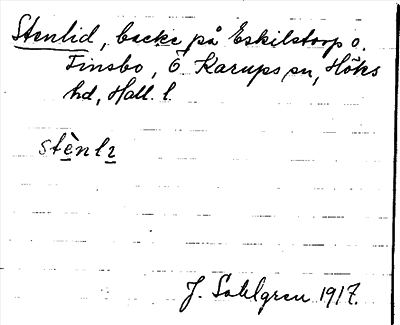 Stenlid, backe på Eskilstorp o.
Finsbo, Ö. Karups sn, Höks
hd, Hall. l.
stènlɪ
J. Sahlgren 1917.